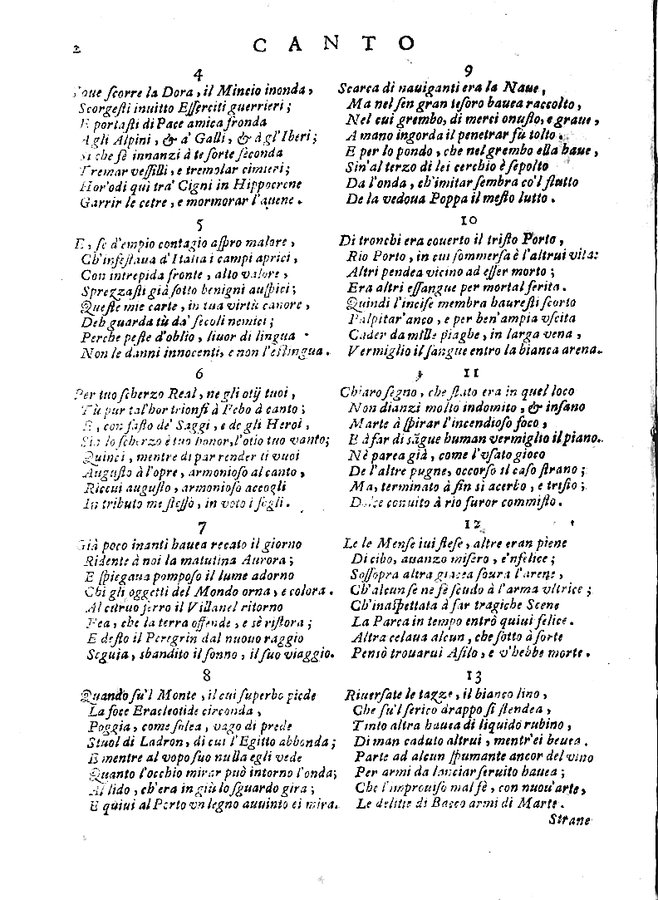 2
CANTO
4
Doue scorre la Dora, il Mincio inonda,
Scorgesti inuitto Esserciti guerrieri;
E portasti di Pace amica fronda
Agli Alpini, & a' Galli, & àgl'Iberi;
Si che fè innanzi à te sorte seconda
Tremar vessilli, e tremolar cimieri;
Hor'odi quì tra' Cigni in Hippocrene
Garrir le cetre, e mormorar l'auene.
5
E, se d'empio contagio aspro malore,
Ch'infestaua d'Italia i campi aprici,
Con intrepida fronte, alto valore,
Sprezzasti già sotto benigni auspici;
Queste mie carte, in tua virtù canore,
Deh guarda tù da' secoli nemici;
Perche peste d'oblio, liuor di lingua
Non le danni innocenti, e non l'estingua.
6
Per tuo scherzo Real, ne gli otij tuoi,
Tù pur tal'hor trionfi à Febo à canto;
E, con fasto de' Saggi, e de gli Heroi,
Sia lo scherzo è tuo honor, l'otio tuo vanto;
Quinci, mentre di par render ti vuoi
Augusto à l'opre, armonioso al canto,
Riceui augusto, armonioso accogli
In tributo me stesso, in voto i fogli.
7
Già poco inanti hauea recato il giorno
Ridente à noi la matutina Aurora;
E spiegaua pomposo il lume adorno
Chi gli oggetti del Mondo orna, e colora.
Al curuo ferro il Villanel ritorno
Fea, che la terra offende, e sè ristora;
E desto il Peregrin dal nuouo raggio
Seguia, sbandito il sonno, il suo viaggio.
8
Quando su'l Monte, il cui superbo piede
La foce Eracleotide circonda,
Poggia, come solea, vago di prede
Stuol di Ladron, di cui l'Egitto abbonda;
E mentre al vopo suo nulla egli vede
Quanto l'occhio mirar può intorno l'onda;
Al lido, ch'era in giù lo sguardo gira;
E quiui al Porto vn legno auuinto ei mira.
9
Scarca di nauiganti era la Naue,
Ma nel sen gran tesoro hauea raccolto,
Nel cui grembo, di merci onusto, e graue,
A mano ingorda il penetrar fù tolto.
E per lo pondo, che nel grembo ella haue,
Sin'al terzo di lei cerchio è sepolto
Da l'onda, ch'imitar sembra co'l flutto
De la vedoua Poppa il mesto lutto.
10
Di tronchi era couerto il tristo Porto,
Rio Porto, in cui sommersa è l'altrui vita:
Altri pendea vicino ad esser morto;
Era altri essangue per mortal ferita.
Quindi l'incise membra hauresti scorto
Palpitar'anco, e per ben'ampia vscita
Cader da mille piaghe, in larga vena,
Vermiglio il sangue entro la bianca arena.
11
Chiaro segno, che stato era in quel loco
Non dianzi molto indomito, & insano
Marte à spirar l'incendioso foco,
E à far di sãgue human vermiglio il piano.
Nè parea già, come l'vsato gioco
De l'altre pugne, occorso il caso strano;
Ma, terminato à fin sì acerbo, e tristo;
Dolce conuito à rio furor commisto.
12
Le le Mense iui stese, altre eran piene
Di cibo, auanzo misero, e'nfelice;
Sossopra altra giacea soura l'arene,
Ch'alcun se ne fè scudo à l'arma vltrice;
Ch'inaspettata à far tragiche Scene
La Parca in tempo entrò quiui felice.
Altra celaua alcun, che sotto à sorte
Pensò trouarui Asilo, e v'hebbe morte.
13
Riuersate le tazze, il bianco lino,
Che su'l serico drappo si stendea,
Tinto altra hauea di liquido rubino,
Di man caduto altrui, mentr'ei beuea.
Parte ad alcun spumante ancor del vino
Per armi da lanciar seruito hauea;
Che l'improuiso mal fè, con nuou'arte,
Le delitie di Bacco armi di Marte.
Strane